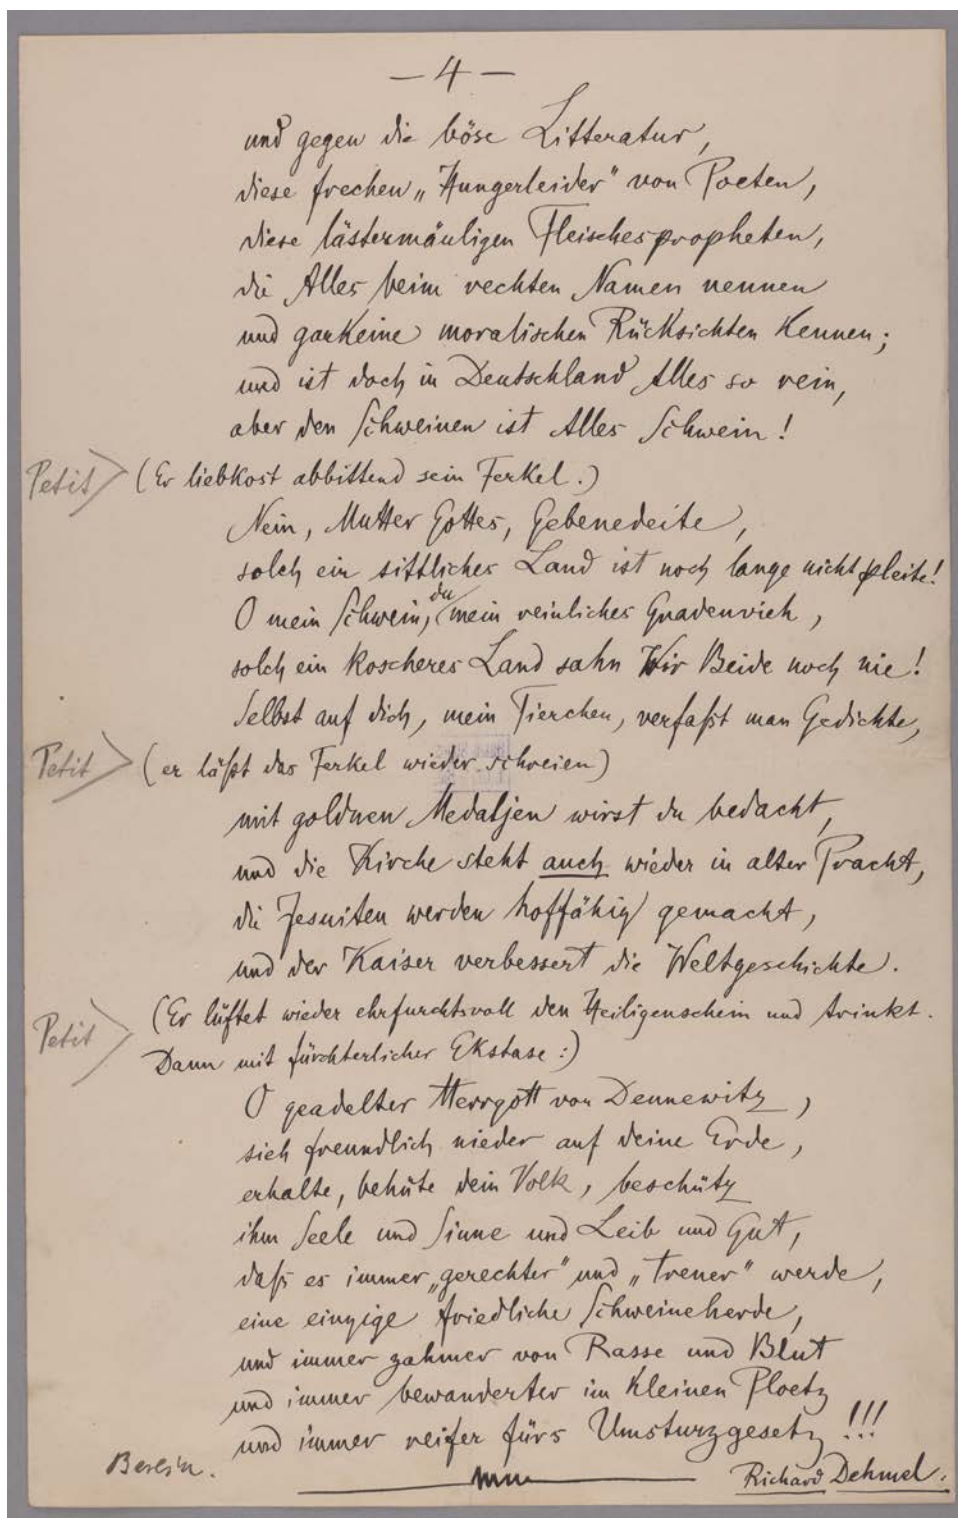 — 4 —
und gegen die böse Litteratur,
diese frechen „Hungerleider" von Poeten,
diese lästermäuligen Fleischespropheten,
die Alles beim rechten Namen nennen
und garkeine moralischen Rücksichten kennen;
und ist doch in Deutschland Alles so rein,
aber den Schweinen ist Alles Schwein!
Petit (Er liebkost abbittend sein Ferkel.)
Nein, Mutter Gottes, Gebenedeite,
solch ein sittliches Land ist noch lange nicht pleite!
O mein Schwein, du mein reinliches Gnadenvieh,
solch ein koscheres Land sahn Wir Beide noch nie!
Selbst auf dich, mein Tierchen, verfaßt man Gedichte,
Petit (er läßt das Ferkel wieder schreien)
mit goldnen Medaljen wirst du bedacht,
und die Kirche steht auch wieder in alter Pracht,
die Jesuiten werden hoffähig gemacht,
und der Kaiser verbessert die Weltgeschichte.
Petit (Er lüftet wieder ehrfurchtsvoll den Heiligenschein und trinkt.
Dann mit fürchterlicher Ekstase:)
O geadelter Herrgott von Dennewitz,
sieh freundlich nieder auf deine Erde,
erhalte, behüte dein Volk, beschütz
ihm Seele und Sinne und Leib und Gut,
daß es immer „gerechter" und „treuer" werde,
eine einzige friedliche Schweineherde,
und immer zahmer von Rasse und Blut
und immer bewanderter im kleinen Ploetz
und immer reifer fürs Umsturzgesetz!!!
Berlin.
Richard Dehmel.